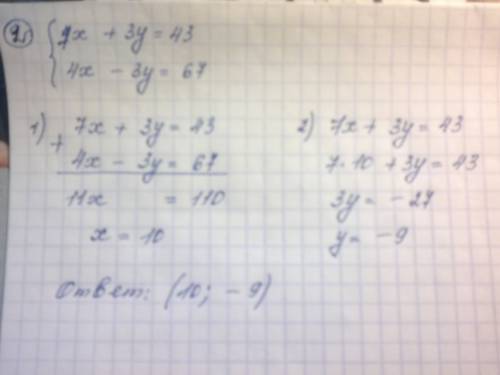 9. { 7x + 3y = 43
4x - 3y = 67
1) + 7x + 3y = 43
4x - 3y = 67
11x = 110
x = 10
2) 7x + 3y = 43
7·10 + 3y = 43
3y = -27
y = -9
Ответ: (10; -9)